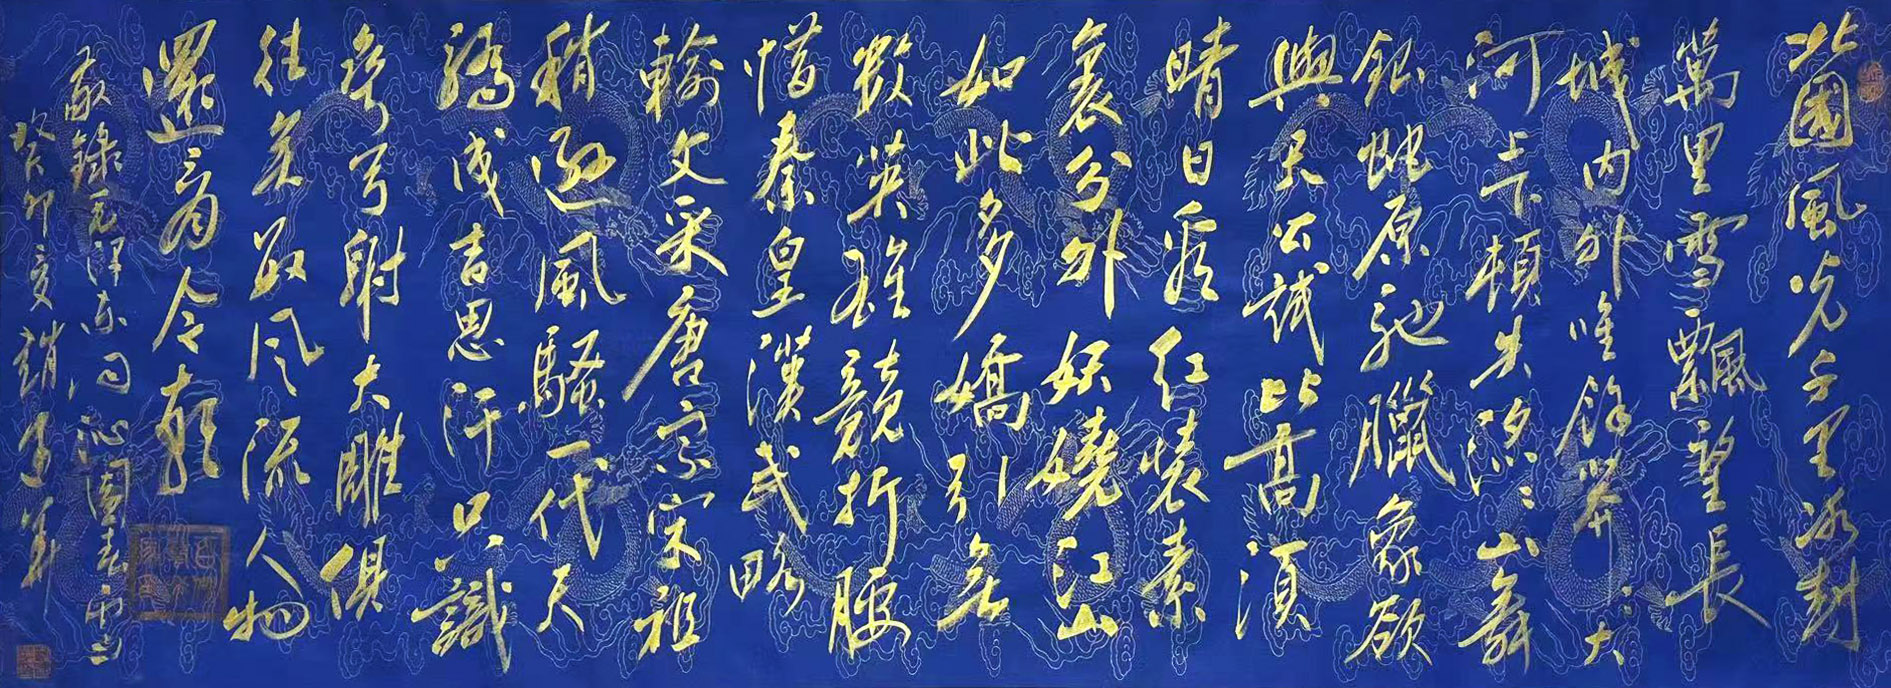 北國風光千里冰封
萬里雪飄望長
城内外唯餘莽〻大
河上下頓失滔〻山舞
銀蛇原馳臘象欲
與天公試比高須
晴日看红裝素
裹分外妖嬈江山
如此多嬌引無
數英雄競折腰
惜秦皇漢武略
輸文采唐宗宋祖
稍遜風騷一代天
驕成吉思汗只識
彎弓射大雕俱
往矣數风流人物
還看今朝
敬錄毛澤东词沁園春雪
癸卯夏趙